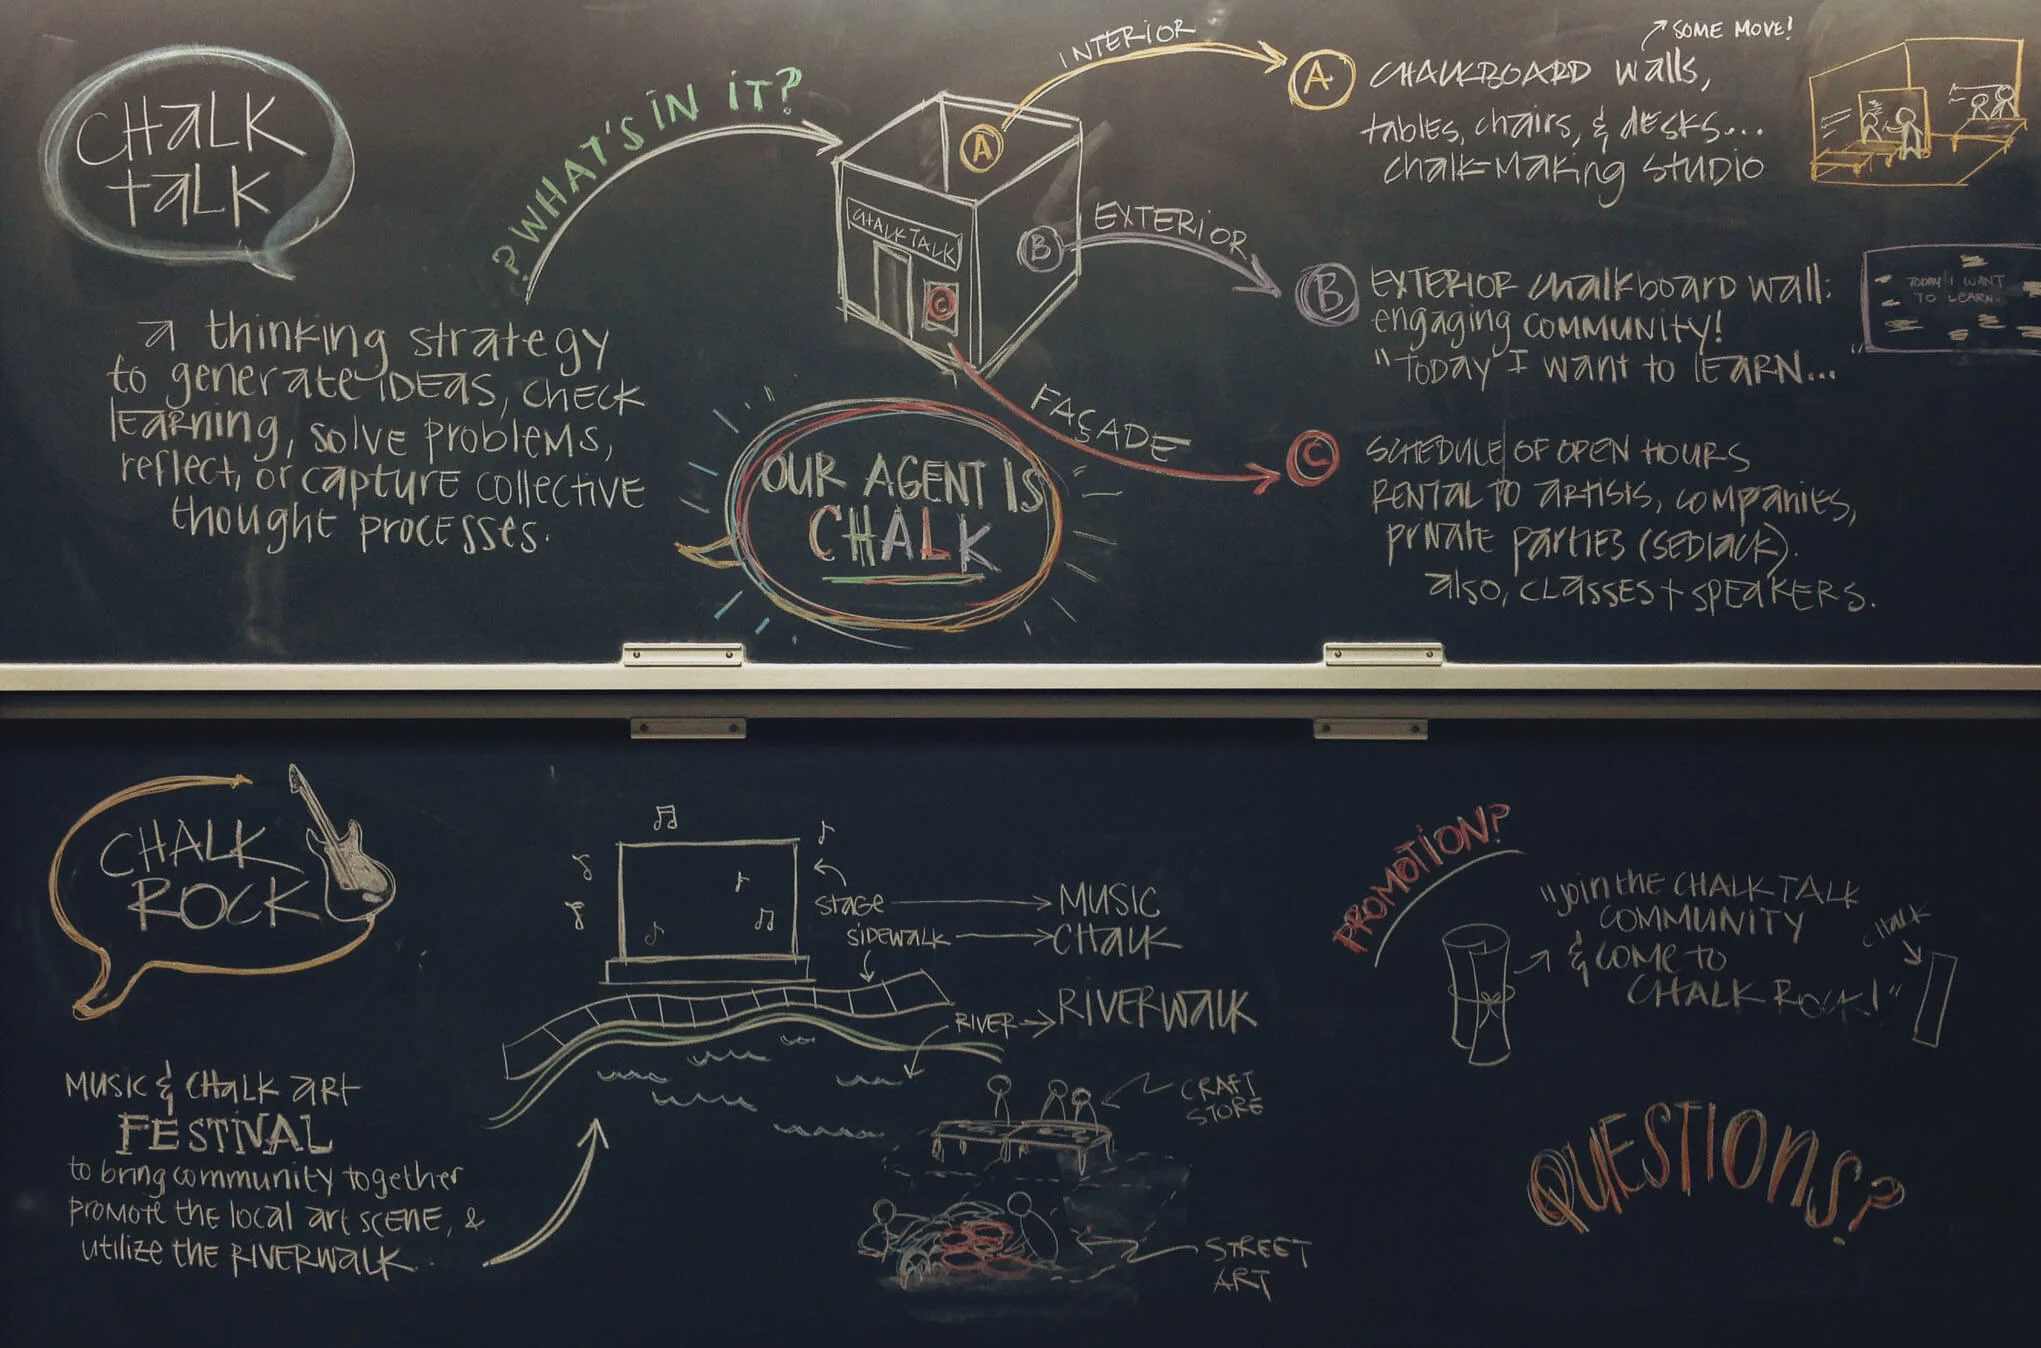 CHALK
TALK
a thinking strategy
to generate IDEAS, CHECK
LEARNING, SOLVE PROBLEMS,
reflect, or capture collective
thought processes.
? WHAT'S IN IT?
A
CHALK TALK
B
C
INTERIOR
EXTERIOR
FAÇADE
OUR AGENT IS
CHALK
SOME MOVE!
A
CHALKBOARD walls,
tables, chairs, & desks...
chalk-making studio
B
EXTERIOR chalkboard wall:
engaging COMMUNITY!
"Today I want to LEARN..."
TODAY I WANT
TO LEARN
C
SCHEDULE OF OPEN HOURS
RENTAL TO ARTISTS, COMPANIES,
private parties (SEDLACK).
also, CLASSES + SPEAKERS.
CHALK
ROCK
MUSIC & CHALK ART
FESTIVAL
to bring community together
promote the local art scene, &
utilize the RIVERWALK.
STAGE
MUSIC
SIDEWALK
CHALK
RIVER
RIVERWALK
CRAFT
STORE
STREET
ART
PROMOTION?
"JOIN THE CHALK TALK
COMMUNITY
& COME TO
CHALK ROCK!"
CHALK
QUESTIONS?